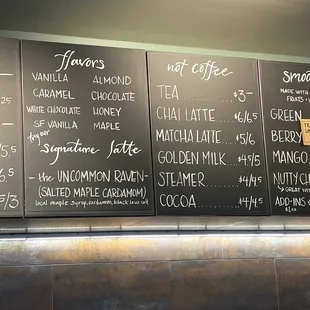 flavors
VANILLA ALMOND
CARAMEL CHOCOLATE
WHITE CHOCOLATE HONEY
SF VANILLA MAPLE
try our
Signature latte
- the UNCOMMON RAVEN -
(SALTED MAPLE CARDAMOM)
local maple syrup, cardamom, black lava salt
not coffee
TEA $3-
CHAI LATTE $6/6.5
MATCHA LATTE $5/6
GOLDEN MILK $4/5
STEAMER $4/4.5
COCOA $4/4.5
SMOO
MADE WITH
FRUITS
GREEN
BERRY
MANGO
NUTTY CH
GREAT WIT
ADD-INS